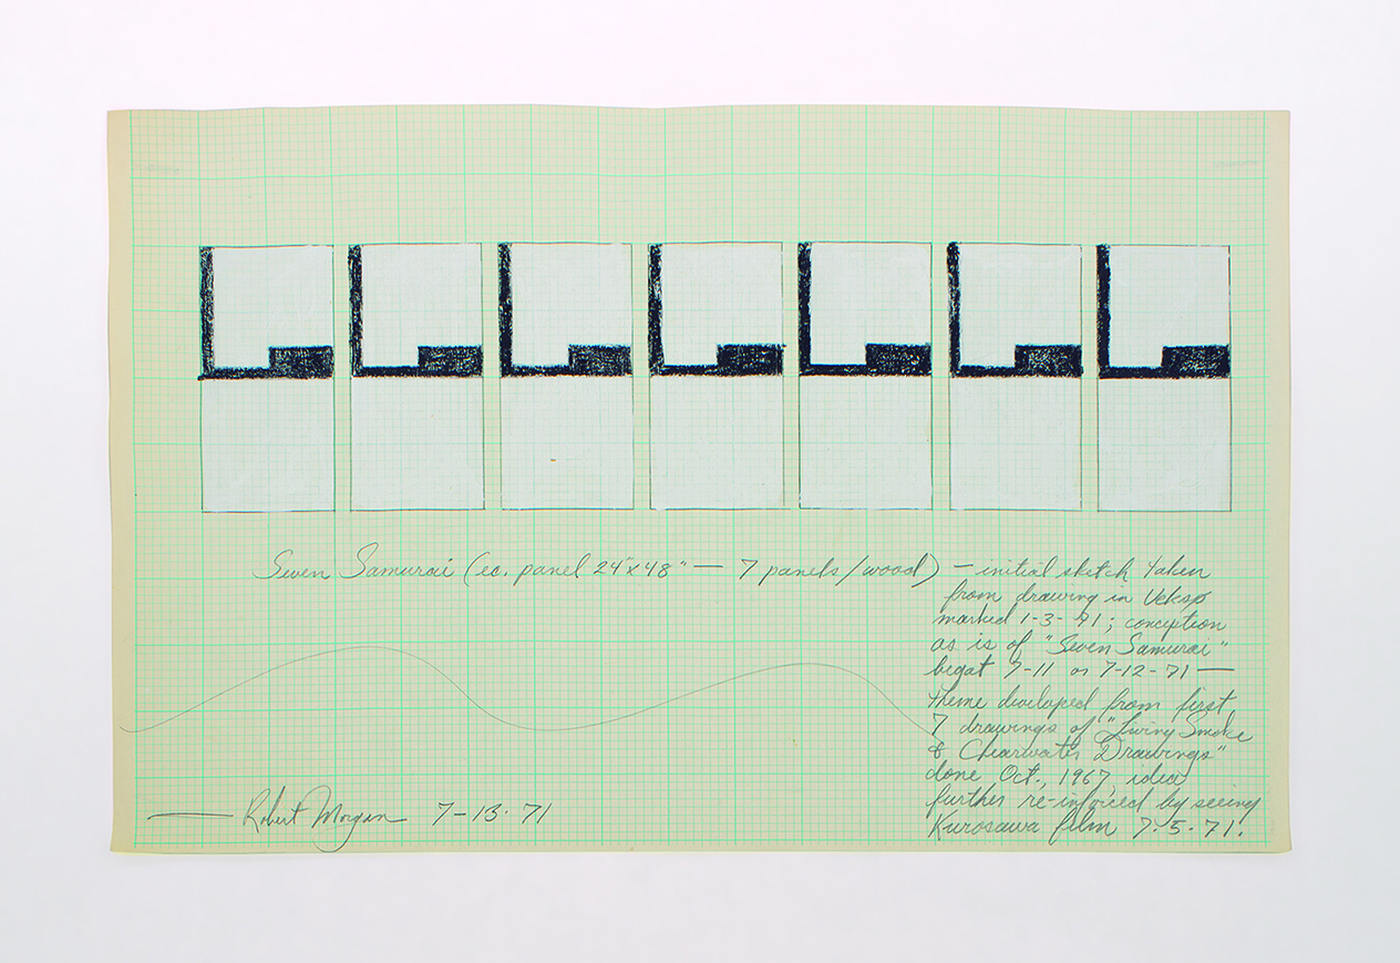 Seven Samurai (ea. panel 24" x 48" — 7 panels/wood) — initial sketch taken
from drawing in
marked 1-3-71; conception
as is of "Seven Samurai"
begat 7-11 or 7-12-71 —
theme developed from first
7 drawings of "Living Smoke
& Clearwater Drawings"
done Oct., 1967 idea
further re-inforced by seeing
Kurosawa film 7.5.71.
— Robert Morgan 7-13-71